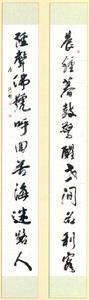 晨鐘暮鼓驚醒世間名利客
經聲佛號呼回苦海迷路人